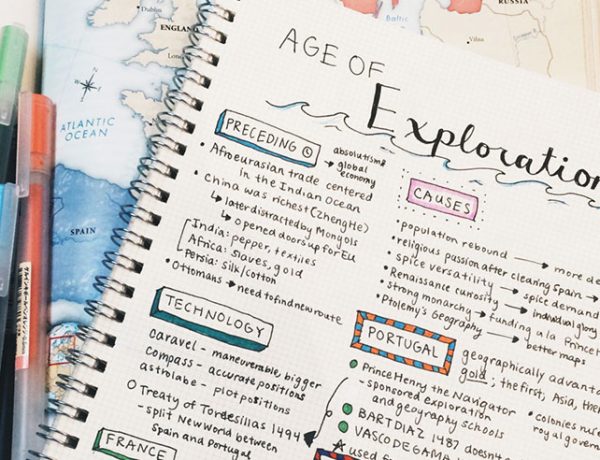 AGE OF
Exploration
PRECEDING
absolutism &
→ global
economy
• Afroeurasian trade centered
in the Indian Ocean
• China was richest (Zheng He)
↳ later distracted by Mongols
↳ opened doors up for EU
India: pepper, textiles
Africa: slaves, gold
Persia: silk/cotton
• Ottomans → need to find new route
CAUSES
• population rebound → more de
• religious passion after clearing Spain →
• spice versatility → spice demand
• Renaissance curiosity → individual glory
• strong monarchy → funding a la Prince
• Ptolemy's Geography → better maps
TECHNOLOGY
caravel - maneuverable bigger
compass - accurate positions
astrolabe - plot positions
○ Treaty of Tordesillas 1494
- split New World between
Spain and Portugal
FRANCE
PORTUGAL
geographically advanta
gold: the first, Asia, then
• Prince Henry the Navigator
- sponsored exploration
and geography schools
• BART DIAZ 1487 doesn't
• VASCO DE GAMA
used f
• colonies nur
royal govern
Dublin
ENGLAND
ATLANTIC
OCEAN
SPAIN
Baltic
Vilna
RUSSIA